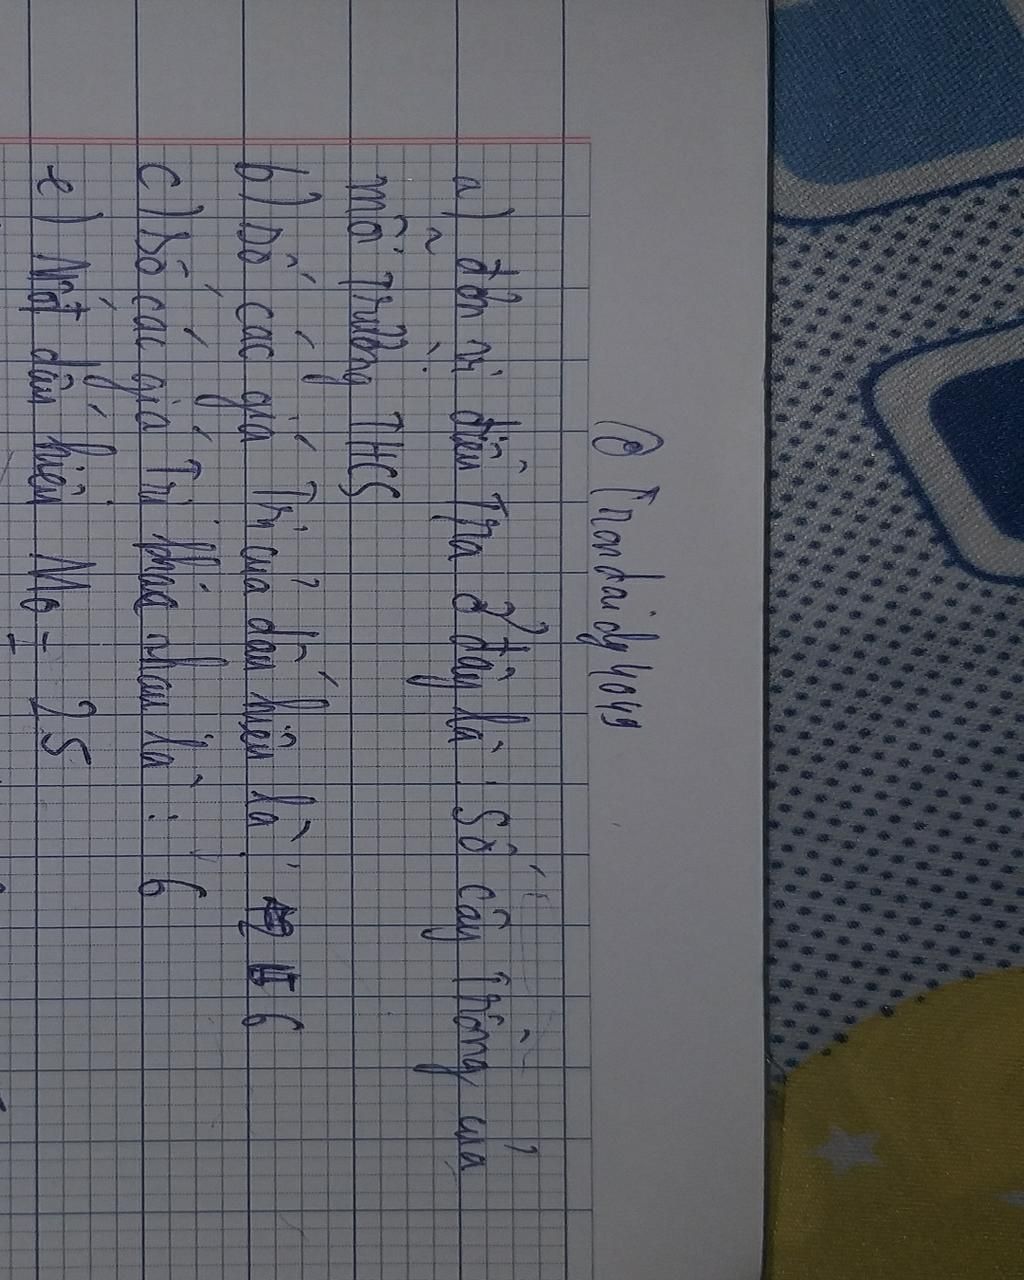 @Trandaidy4049
a) đơn vị điều tra ở đây là : Số cây trồng của
mỗi trường THCS
b) Số các giá trị của dấu hiệu là : 6
c) Số các giá trị khác nhau là : 6
e) Mốt dấu hiệu Mo = 25